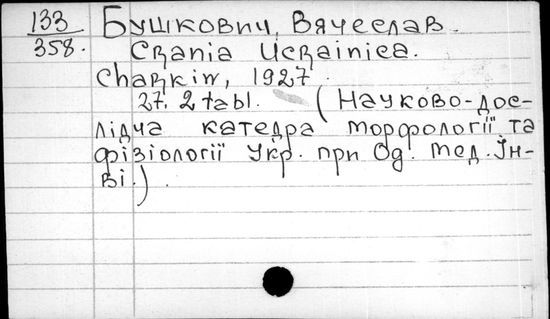 133
358.
Бушкович, Вячеслав.
Crania Ucrainica.
Charkiw, 1927.
27. 2 tabl. (Науково-дос-
лідча катедра морфології та
фізіології Укр. при Од. мед. Ін-
ві.).